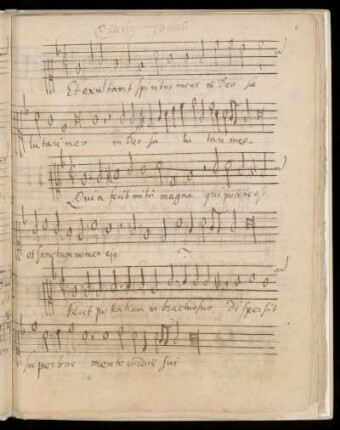 Et exultavit spiritus meus in Deo sa
lutari meo in Deo sa lu tari meo.
Quia fecit mihi magna qui potens e
et sanctum nomen eiq
Fecit potentiam in brachio suo dispersit
superbos mente cordis sui